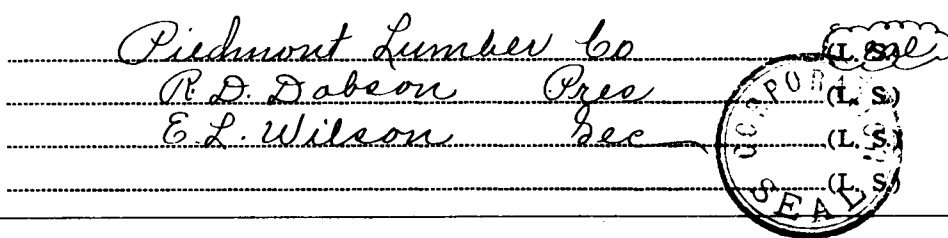 Piedmont Lumber Co (L. S.) Seal
R. D. Dobson Pres (L. S.)
E. L. Wilson Sec (L. S.)
(L. S.)
CORPORATE SEAL